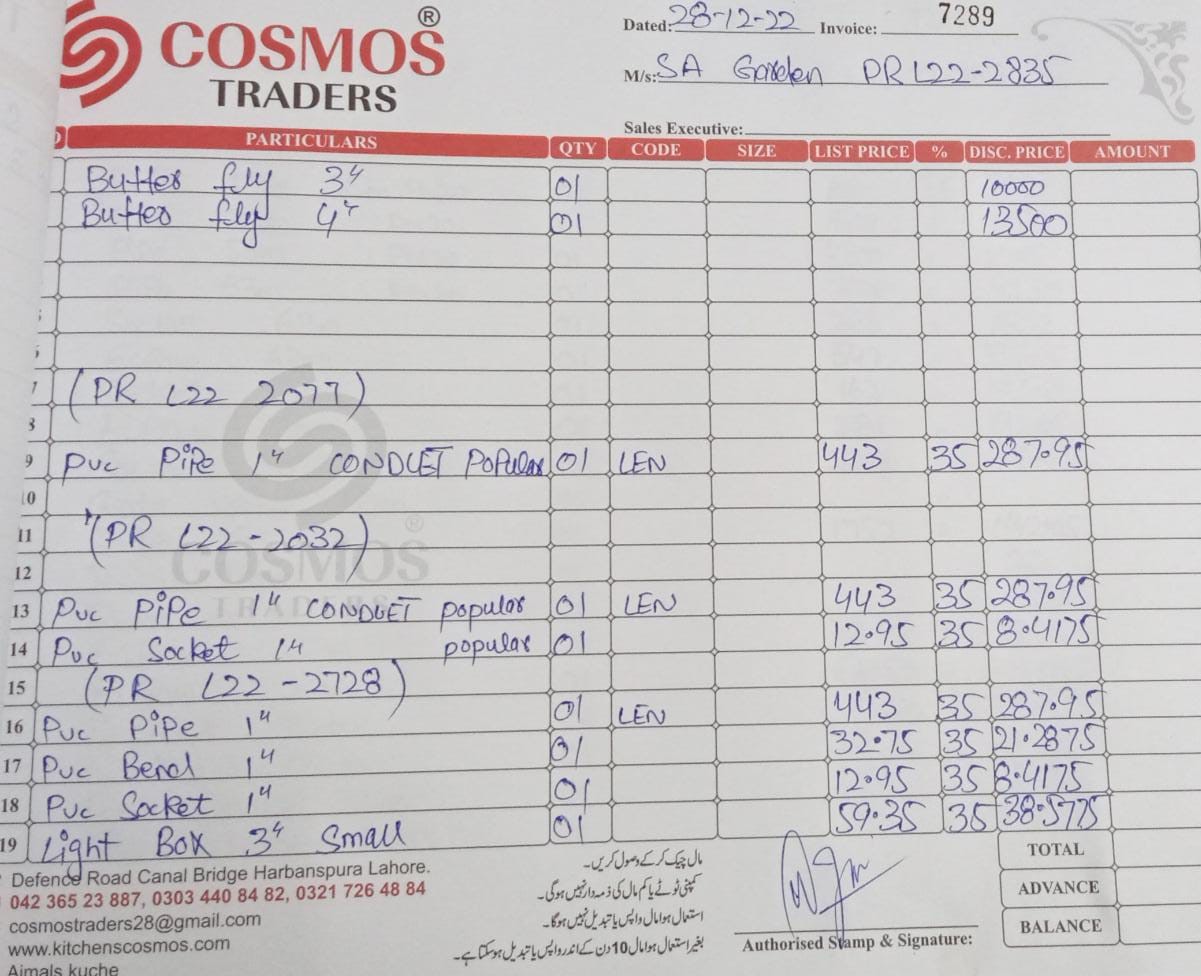 COSMOS ®
TRADERS
Dated: 28-12-22 Invoice: 7289
M/s: SA Garden PR L22-2835
Sales Executive:
PARTICULARS QTY CODE SIZE LIST PRICE % DISC. PRICE AMOUNT
Butter fly 3" 01 10000
Butter fly 4" 01 13500
7 (PR L22 2077)
8
9 Puc PiPe 1" CONDUET POPular 01 LEN 443 35 287.95
10
11 (PR L22-2032)
12
13 Puc PiPe 1" CONDUET popular 01 LEN 443 35 287.95
14 Puc Socket 1" popular 01 12.95 35 8.4175
15 (PR L22-2728)
16 Puc PiPe 1" 01 LEN 443 35 287.95
17 Puc Bend 1" 01 32.75 35 21.2875
18 Puc Socket 1" 01 12.95 35 8.4175
19 Light Box 3" Small 01 59.35 35 38.5775
COSMOS ®
TRADERS
TOTAL
ADVANCE
BALANCE
Defence Road Canal Bridge Harbanspura Lahore.
042 365 23 887, 0303 440 84 82, 0321 726 48 84
cosmostraders28@gmail.com
www.kitchenscosmos.com
Ajmals kuche
مال چیک کر کے وصول کریں۔
کمپنی ٹوٹے یا کم مال کی ذمہ دار نہیں ہوگی۔
استعمال ہوا مال واپس یا تبدیل نہیں ہوگا۔
بغیر استعمال ہوا مال 10 دن کے اندر واپس یا تبدیل ہو سکتا ہے۔
Authorised Stamp & Signature: